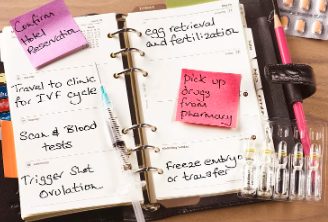 Confirm
Hotel
Reservation
Travel to clinic
for IVF cycle
Scan & Blood
tests
Trigger Shot
Ovulation
egg retrieval
and fertilization
pick up
drugs
from
pharmacy
Freeze embryo
or transfer